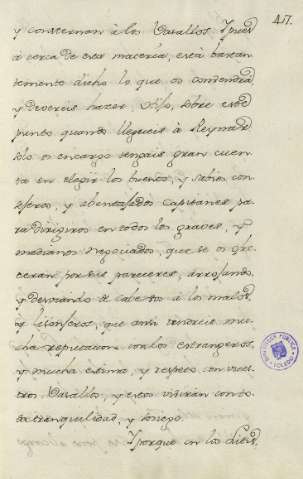 417.
y conservan à los Vasallos. Y pues
à cerca de esta materia, está bastan
temente dicho lo que os combendrá
y devereis hazer. Solo, sobre este
punto quando llegueis à Reynar
solo os encargo tengais gran cuen
ta en elegir los buenos, y sabios con
sejeros, y abentajados Capitanes pa
ra dirigiros en todos los graves, y
medianos negociados, que se os ofre
ceran por sus pareceres, arrojando,
y desviando de cabe vos à los malos,
y lisonjeros, que asi tendreis mu
cha reputacion con los estrangeros,
y mucha estima, y respeto en vues
tros Vasallos, y estos viviran con to
da tranquilidad, y sosiego.
Y porque en los
BIBLIOTECA PUBLICA
TOLEDO